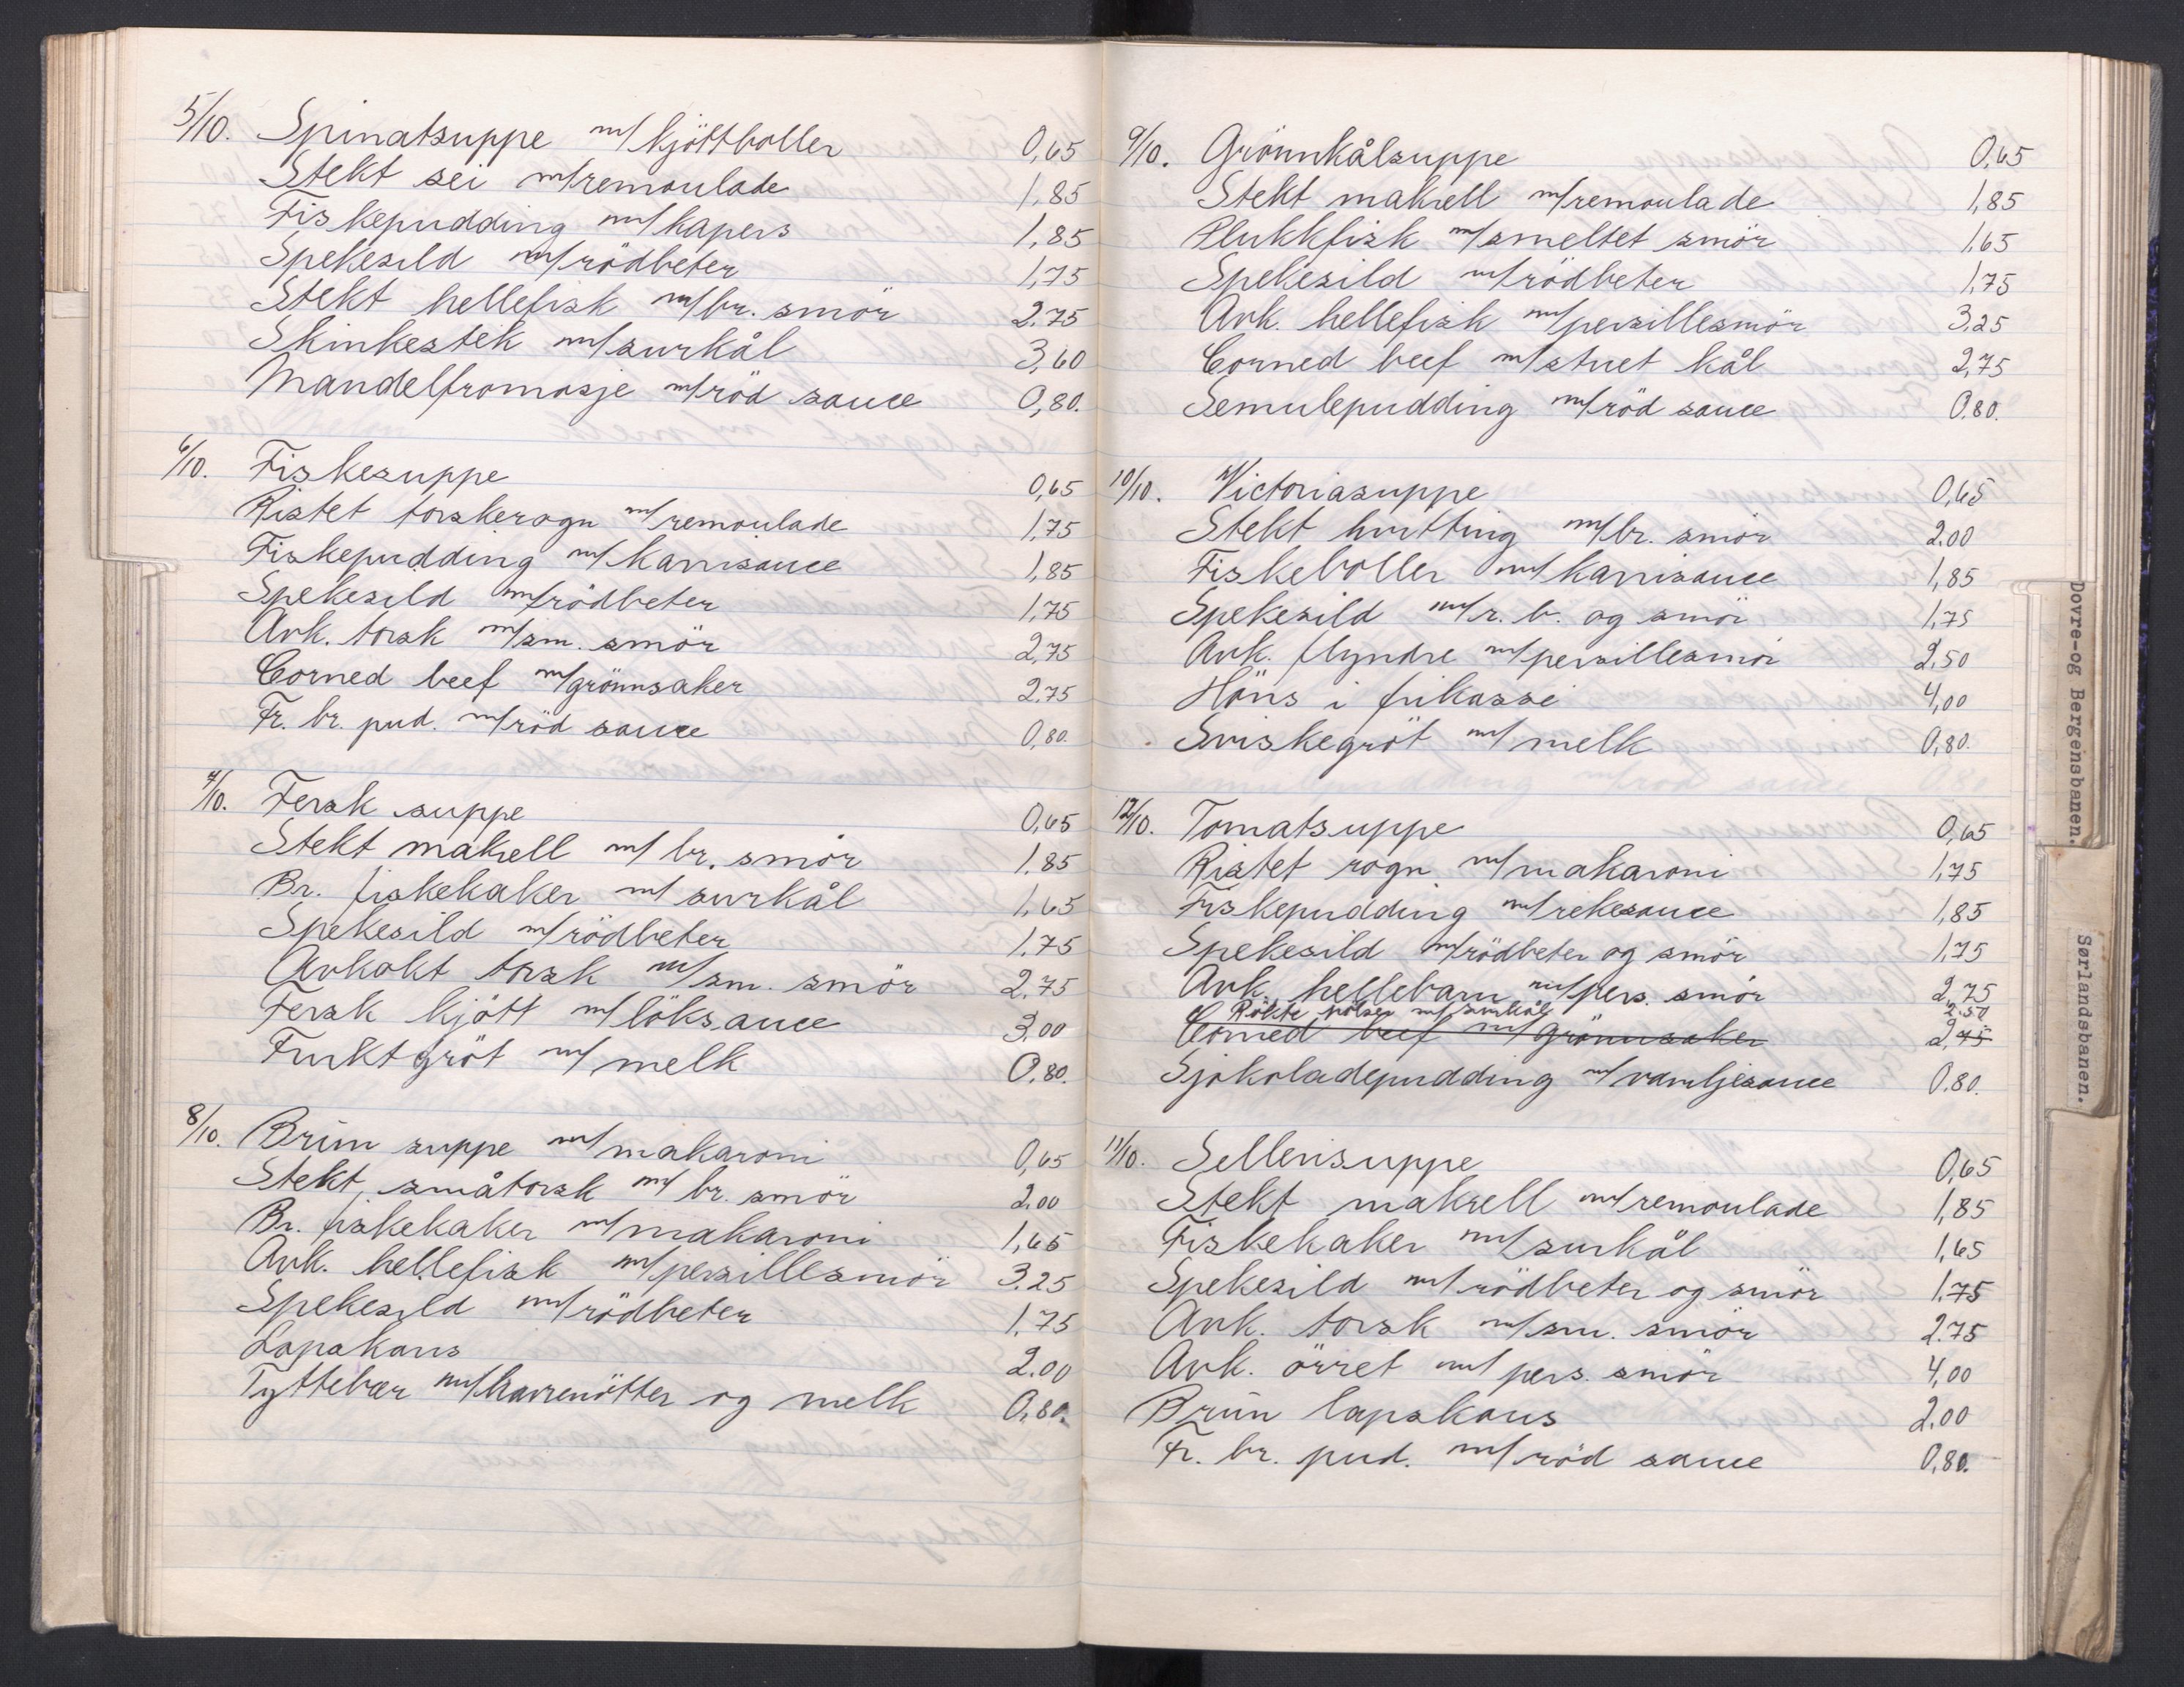 5/10. Spinatsuppe m/ kjöttboller 0,65
Stekt sei m/remoulade 1,85
Fiskepudding m/kapers 1,85
Spekesild m/rödbeter 1,75
Stekt hellefisk m/br. smör 2.75
Skinkestek m/surkål 3,60
Mandelfromasje m/röd sauce 0,80.
6/10. Fiskesuppe 0,65
Ristet torskerogn m/remoulade 1,75
Fiskepudding m/karrisauce 1,85
Spekesild m/rödbeter 1,75
Avk. torsk m/sm. smör 2,75
Corned beef m/grönnsaker 2.75
Fr. br. pud. m/röd sauce 0,80.
7/10. Fersk suppe 0,65
Stekt makrell m/ br. smör 1.85
Br. fiskekaker m/ surkål 1,65
Spekesild m/rödbeter 1.75
Avkokt torsk m/sm. smör 2.75
Fersk kjött m/löksauce 3,00
Fruktgröt m/ melk 0,80.
8/10. Brun suppe m/makaroni 0,65
Stekt småtorsk m/ br. smör 2.00
Br. fiskekaker m/makaroni 1,65
Avk. hellefisk m/persillesmör 3.25
Spekesild m/rödbeter 1,75
Lapskaus 2.00
Tyttebær m/havrenötter og melk 0,80.
9/10. Grönnkålsuppe 0,65
Stekt makrell m/remoulade 1,85
Plukkfisk m/smeltet smör 1,65
Spekesild m/rödbeter 1,75
Avk. hellefisk m/persillesmör 3,25
Corned beef m/stuet kål 2,75
Semulepudding m/röd sauce 0.80.
10/10. Victoriasuppe 0,65
Stekt hvitting m/br. smör 2.00
Fiskeboller m/karrisauce 1,85
Spekesild m/r. b. og smör 1,75
Avk. flyndre m/persillesmör 2,50
Höns i frikassé 4,00
Sviskegröt m/ melk 0,80.
12/10. Tomatsuppe 0,65
Ristet rogn m/makaroni 1,75
Fiskepudding m/rekesauce 1,85
Spekesild m/rödbeter og smör 1,75
Avk. hellebarn m/pers. smör 2,75
Rökte pölser m/surkål 2.50
Corned beef m/grönnsaker 2,75
Sjokoladepudding m/vaniljesauce 0.80.
11/10. Sellerisuppe 0,65
Stekt makrell m/remoulade 1,85
Fiskekaker m/surkål 1,65
Spekesild m/rödbeter og smör 1.75
Avk. torsk m/sm. smör 2.75
Avk. örret m/ pers. smör 4,00
Brun lapskaus 2.00
Fr. br. pud. m/röd sauce 0,80.
Dovre-og Bergensbanen.
Sørlandsbanen.